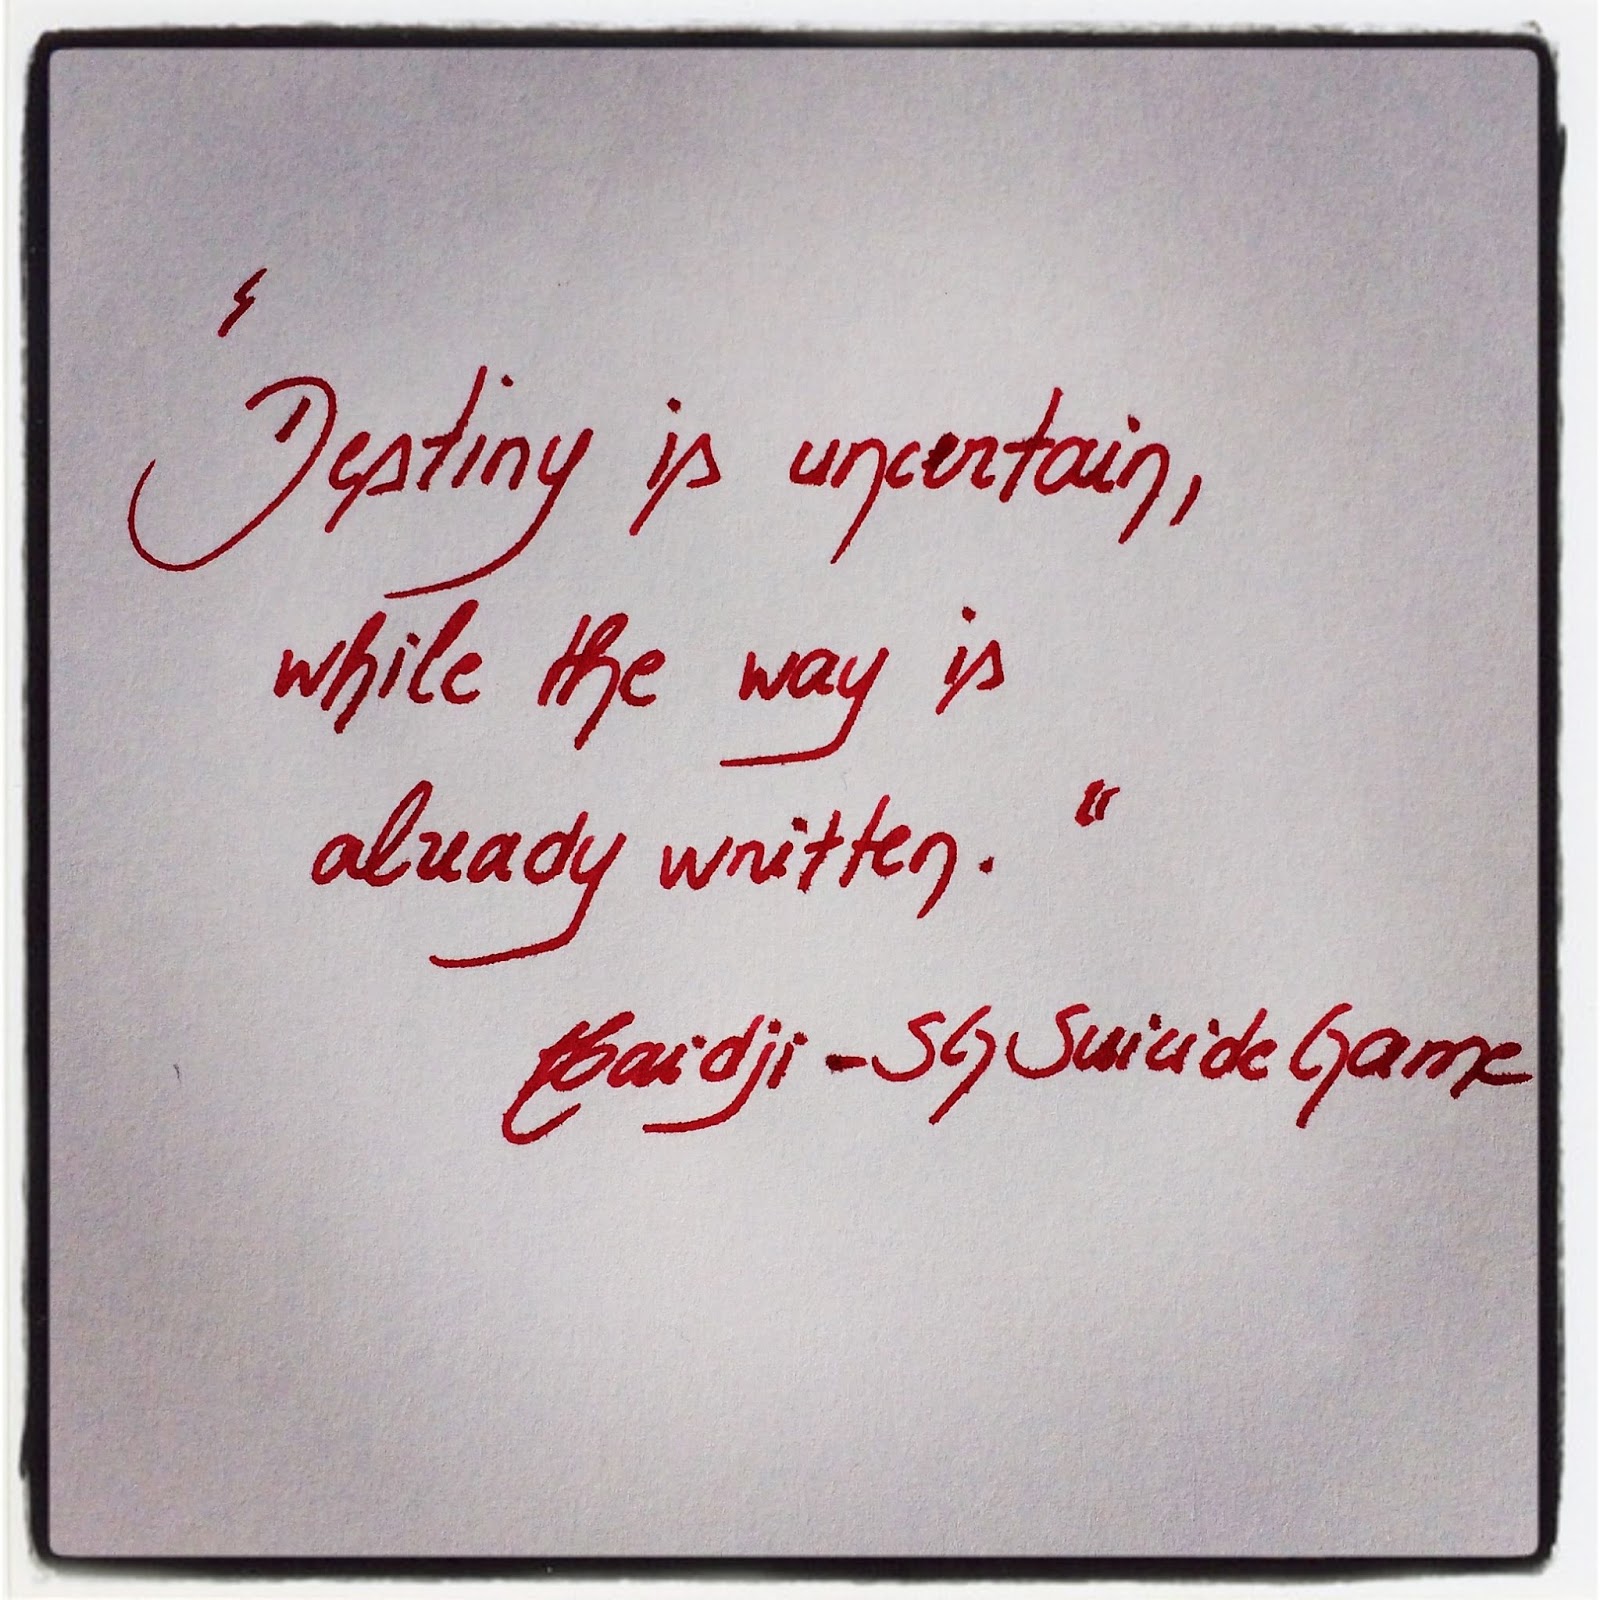 "Destiny is uncertain,
while the way is
already written."
Haidji - SG Suicide Game